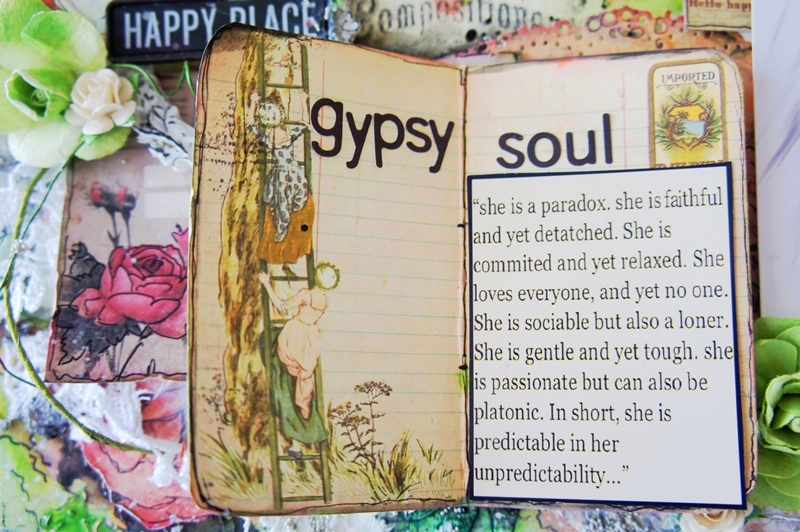 HAPPY PLACE
Compositions
Hello
gypsy soul
IMPORTED
“she is a paradox. she is faithful
and yet detatched. She is
commited and yet relaxed. She
loves everyone, and yet no one.
She is sociable but also a loner.
She is gentle and yet tough. she
is passionate but can also be
platonic. In short, she is
predictable in her
unpredictability...”